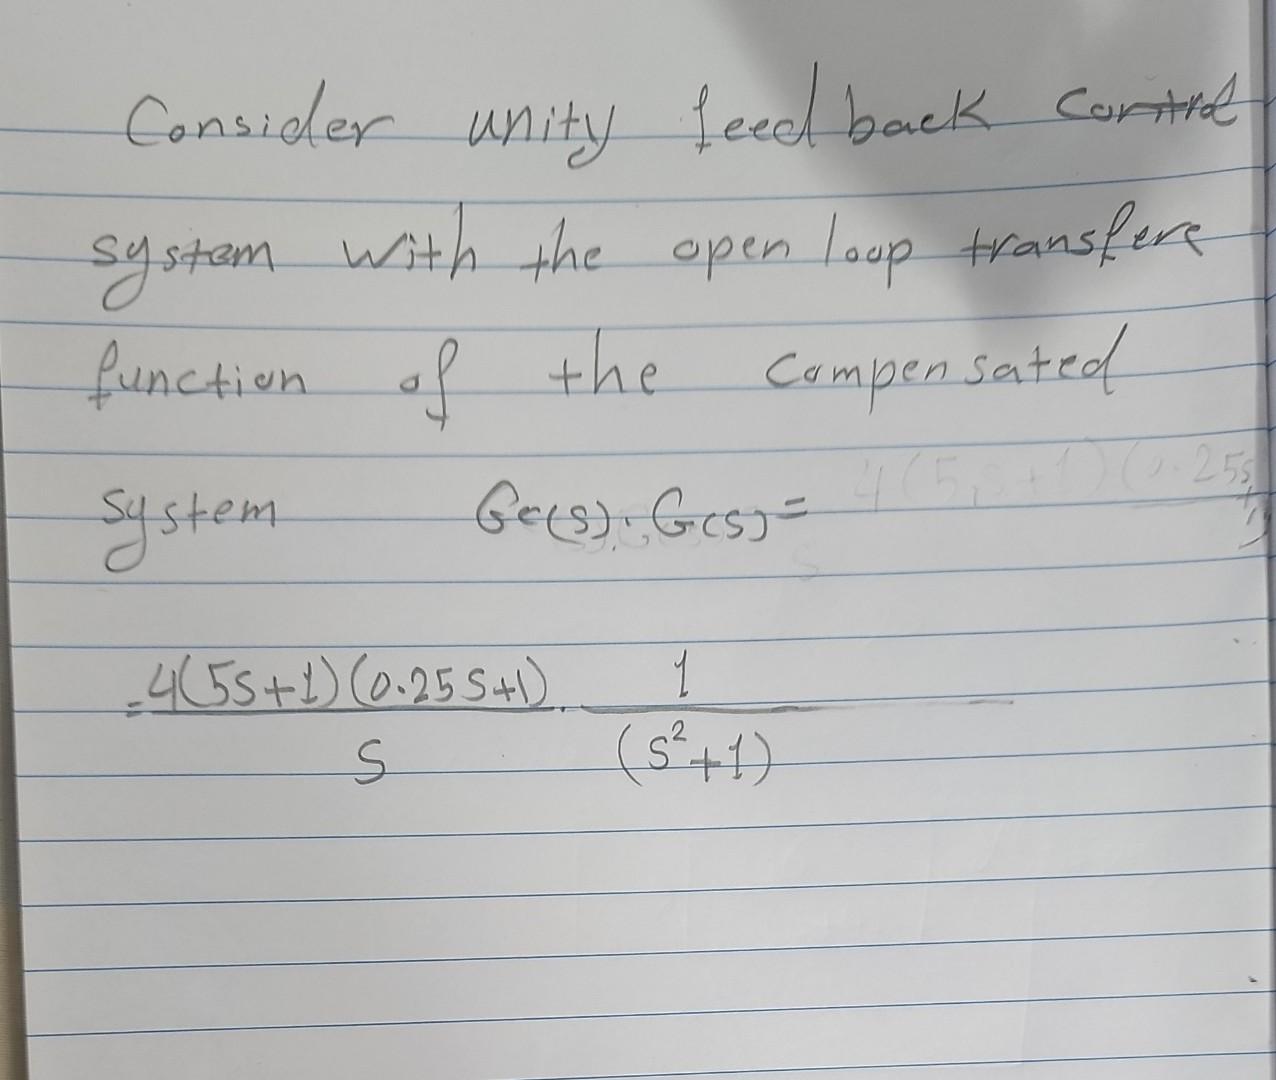 Consider unity feed back control
system with the open loop transfere
function of the compensated
system Gc(s).G(s)=
= 4(5s+1)(0.25s+1) / s . 1 / (s²+1)